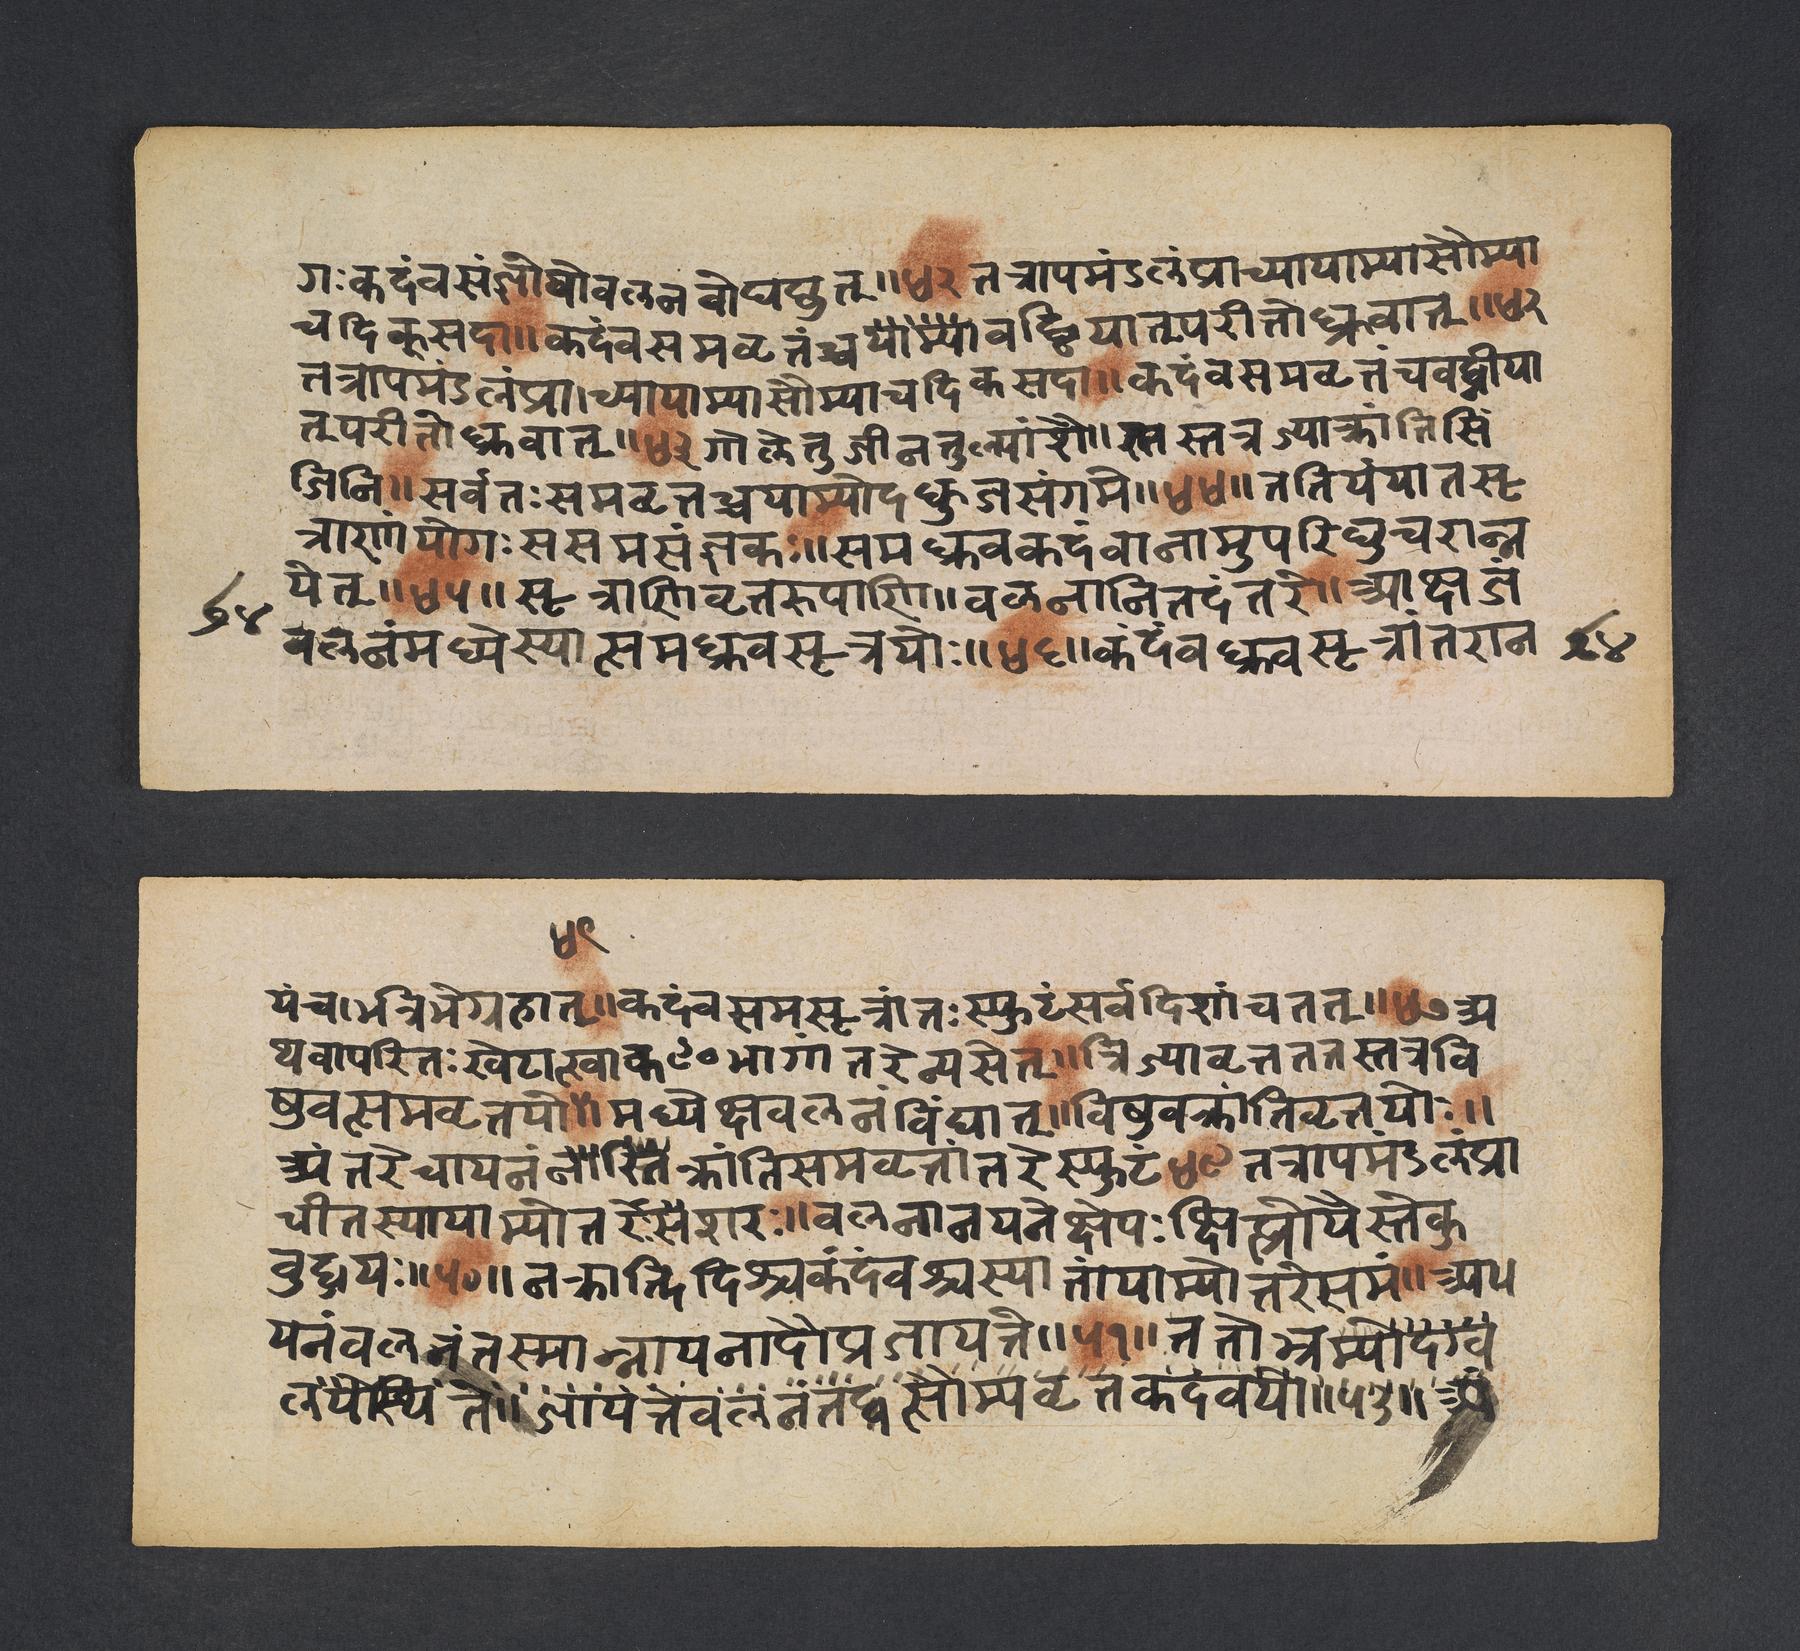 गः कदंवसंज्ञोयोवलनवोघघ्तुत् ॥ ४२ तत्रापमंडलंप्राच्यायाम्यासौम्या
चदिक्सदा ॥ कदंवसमवृत्तंच्च वद्द्वियात्परीतोध्रुवात् ॥ ४२
तत्रापमंडलंप्रा।च्यायाम्यासौम्याचदिकसदा ॥ कदंवसमवृत्तंचवद्धीया
त्परीतोध्रुवात् ॥ ४३ गोलेतुजीनतुल्यांशै ॥ स्तत्रज्याक्रांतिसिं
जिनि ॥ सर्वतः समवृत्तच्चयाम्योदक्कुजसंगमे ॥ ४४ ॥ ततियंयातसू
त्राणांयोगः ससमसंज्ञकः ॥ समध्रुवकदंवानामुपरिद्युचरान्न
येत् ॥ ४५ ॥ सूत्राणिवृत्तरूपाणि ॥ वलनानितदंतरे ॥ आक्षजं
७४ वलनंमध्येस्यात्समध्रुवसूत्रयोः ॥ ४६ ॥ कंदंवध्रुवसूत्रांतरान ७४
४९
यंच।भत्रिभेग्रहात् ॥ कदंवसमसूत्रांतः स्फुटंसर्वदिशांचतत् ॥ ४७ अ
थवापरितः खेटात्खाक९०भागांतरेन्यसेत् ॥ त्रिज्यावृत्तततस्तत्रवि
षुवत्समवृत्तयो ॥ मध्येक्षवलनंविंद्यात् ॥ विषुवक्रांतिवृत्तयोः ॥
अंतरेचायनं क्रांतिसमवृत्तांतरेस्फुटं ४९ तत्रापमंडलंप्रा
चीतस्यायाम्योत्तरेसैशरः ॥ वलनानयनेक्षेपः क्षिप्तोयैस्तेकु
वुद्धयः ॥ ५० ॥ नक्रान्दिदिश्चकंदंवश्चस्यात्तांयाम्योत्तरेसमं ॥ अथ
यनंवलनंतस्मान्नायनादौप्रजायते ॥ ५१ ॥ ततोभ्रम्योदग्व
लयेस्थिते ॥ जायंत्तेवलनंतद्वत्सौम्यवृत्तकदंवयो ॥ ५३ ॥ अ